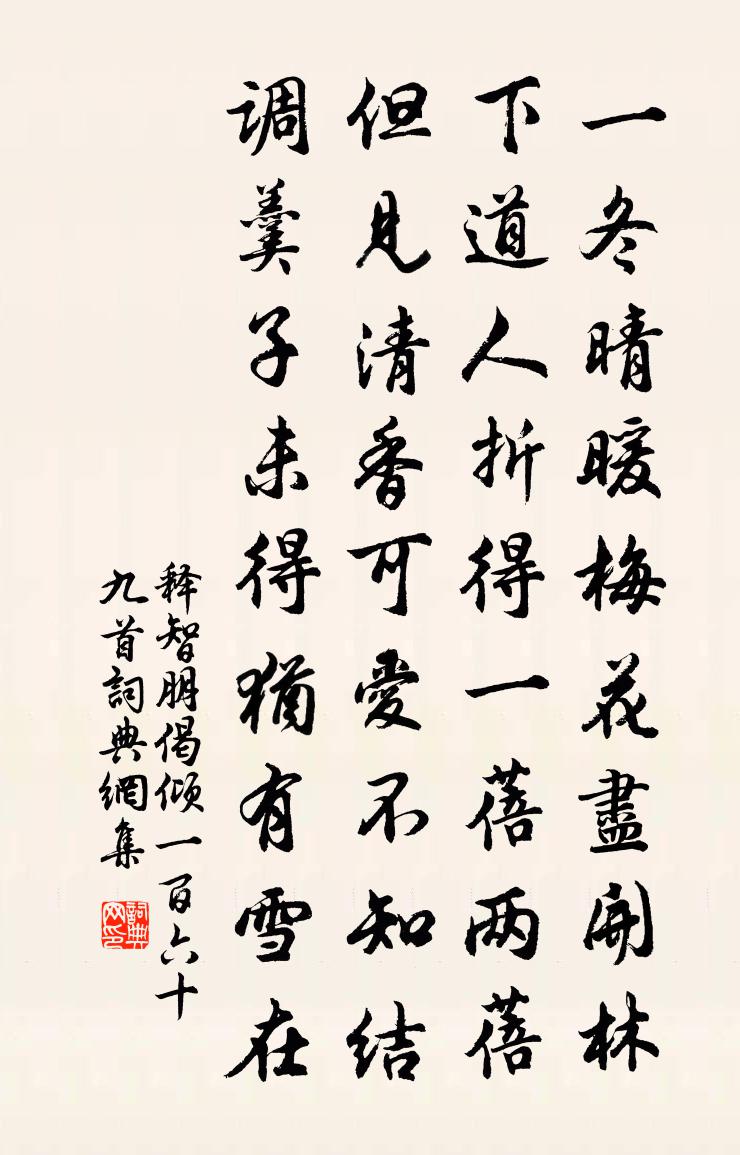 一冬晴暖梅花盡開林
下道人折得一蓓两蓓
但見清香可愛不知结
调羹子未得猶有雪在
释智朋偈倾一百六十
九首詞典網集
詞典
网印